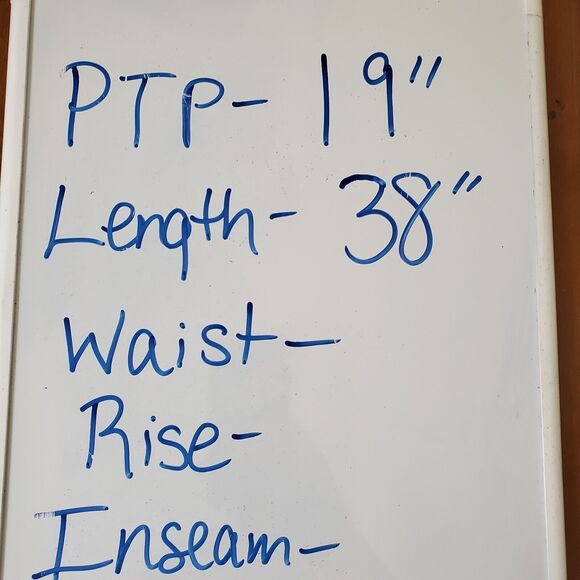 PTP- 19"
Length- 38"
Waist-
Rise-
Inseam-